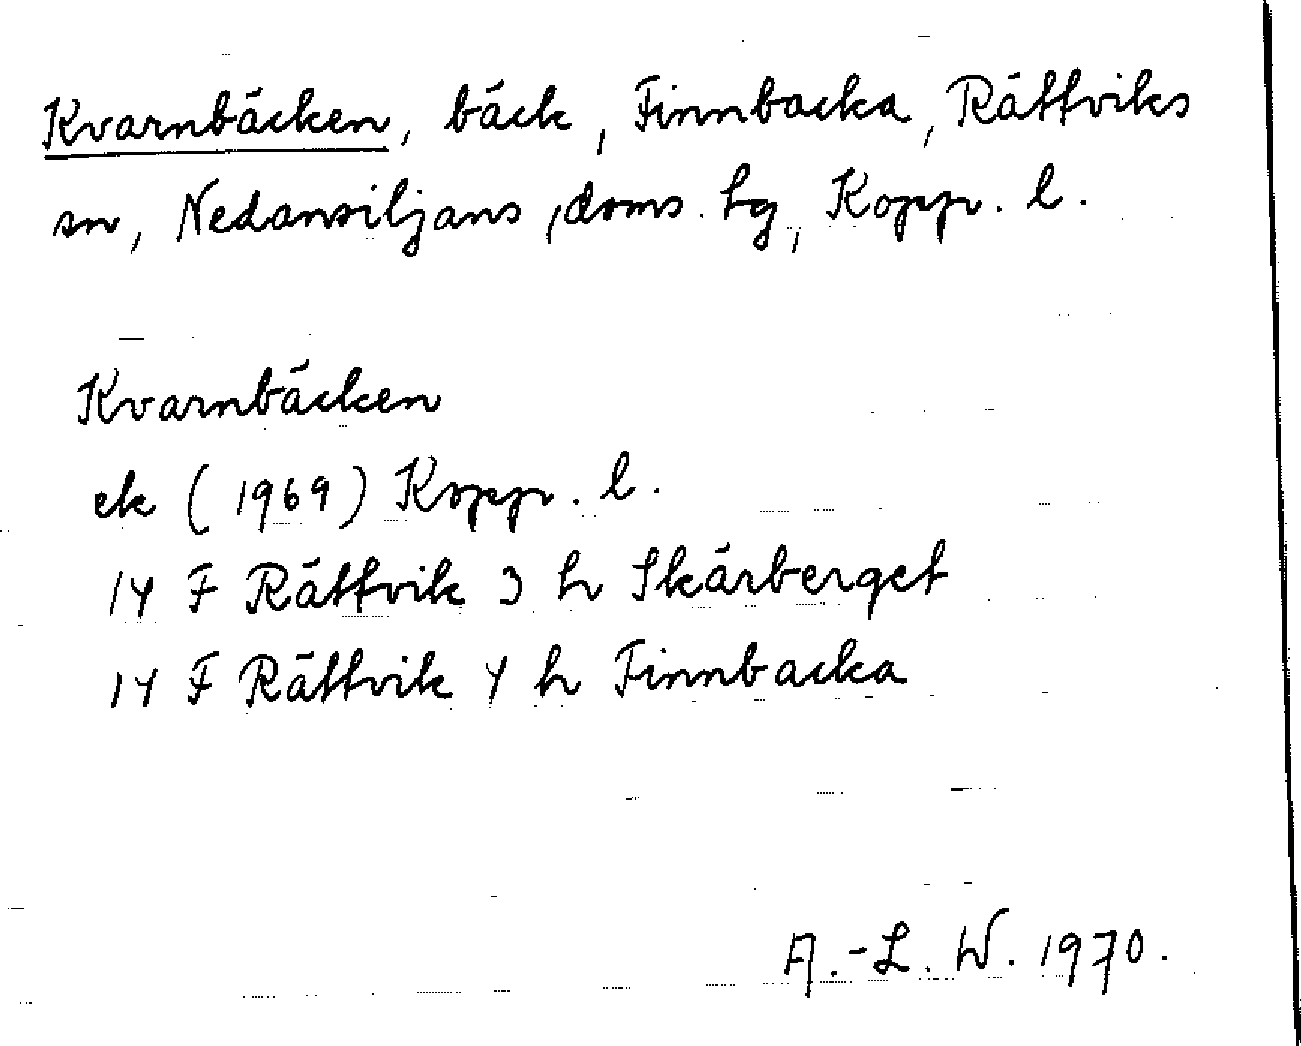 Kvarnbäcken, bäck, Finnbacka, Rättviks
sn, Nedansiljans, doms. hg, Kopp. l.
Kvarnbäcken
ek (1969) Kopp. l.
14 F Rättvik 3 h Skärberget
14 F Rättvik 4 h Finnbacka
A.-L. W. 1970.